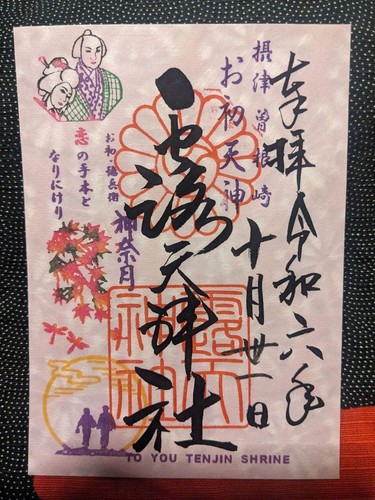 奉拝 令和六年
十月卅一日
摂津 曽根崎
お初天神
露天神社
神奈月
お初 徳兵衛
恋の手本と
なりにけり
TO YOU TENJIN SHRINE